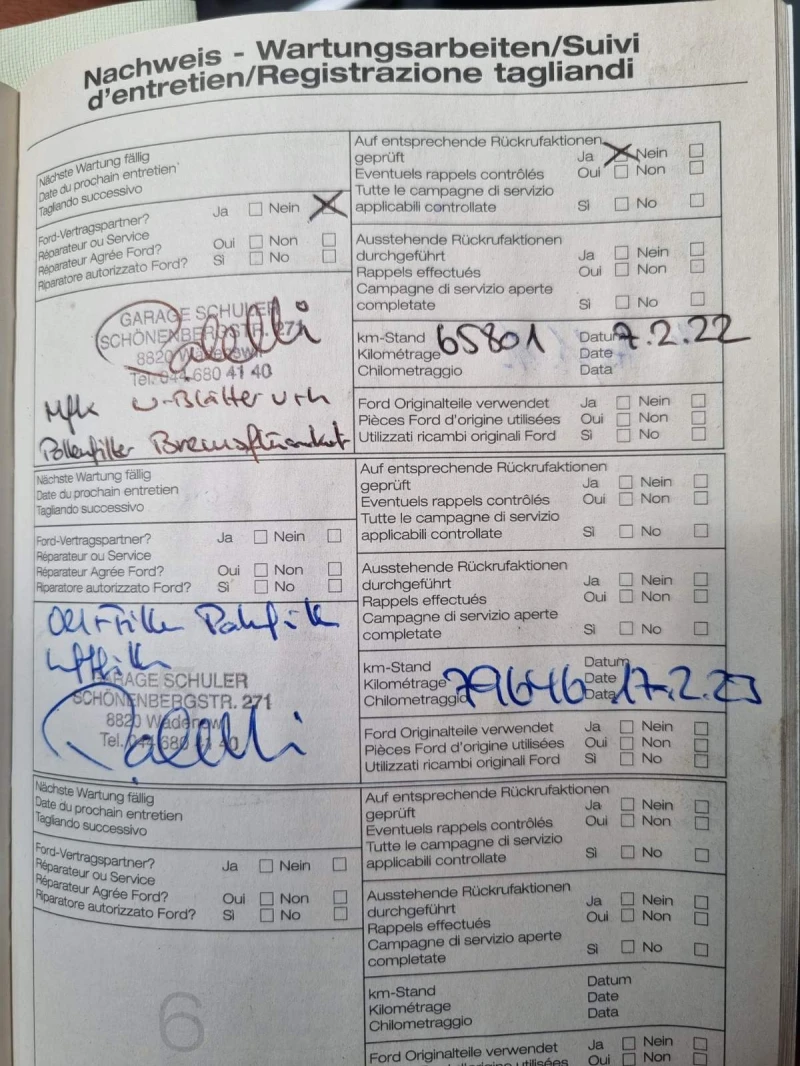 Nachweis - Wartungsarbeiten/Suivi
d'entretien/Registrazione tagliandi
Nächste Wartung fällig
Date du prochain entretien
Tagliando successivo
Ford-Vertragspartner? Ja Nein
Réparateur ou Service
Réparateur Agrée Ford? Oui Non
Riparatore autorizzato Ford? Sì No
GARAGE SCHULER
SCHÖNENBERGSTR. 271
8820 Wädenswil
Tel. 044 680 41 40
Mfk W-Blätter vrh
Pollenfilter
Auf entsprechende Rückrufaktionen
geprüft Ja Nein
Eventuels rappels contrôlés Oui Non
Tutte le campagne di servizio
applicabili controllate Sì No
Ausstehende Rückrufaktionen
durchgeführt Ja Nein
Rappels effectués Oui Non
Campagne di servizio aperte
completate Sì No
km-Stand 65801 Datum 7.2.22
Kilométrage Date
Chilometraggio Data
Ford Originalteile verwendet Ja Nein
Pièces Ford d'origine utilisées Oui Non
Utilizzati ricambi originali Ford Sì No
Nächste Wartung fällig
Date du prochain entretien
Tagliando successivo
Ford-Vertragspartner? Ja Nein
Réparateur ou Service
Réparateur Agrée Ford? Oui Non
Riparatore autorizzato Ford? Sì No
GARAGE SCHULER
SCHÖNENBERGSTR. 271
8820 Wädenswil
Tel. 044 680 41 40
Auf entsprechende Rückrufaktionen
geprüft Ja Nein
Eventuels rappels contrôlés Oui Non
Tutte le campagne di servizio
applicabili controllate Sì No
Ausstehende Rückrufaktionen
durchgeführt Ja Nein
Rappels effectués Oui Non
Campagne di servizio aperte
completate Sì No
km-Stand Datum
Kilométrage 79646 Date 17.2.23
Chilometraggio Data
Ford Originalteile verwendet Ja Nein
Pièces Ford d'origine utilisées Oui Non
Utilizzati ricambi originali Ford Sì No
Nächste Wartung fällig
Date du prochain entretien
Tagliando successivo
Ford-Vertragspartner? Ja Nein
Réparateur ou Service
Réparateur Agrée Ford? Oui Non
Riparatore autorizzato Ford? Sì No
6
Auf entsprechende Rückrufaktionen
geprüft Ja Nein
Eventuels rappels contrôlés Oui Non
Tutte le campagne di servizio
applicabili controllate Sì No
Ausstehende Rückrufaktionen
durchgeführt Ja Nein
Rappels effectués Oui Non
Campagne di servizio aperte
completate Sì No
km-Stand Datum
Kilométrage Date
Chilometraggio Data
Ford Originalteile verwendet Ja Nein
Pièces Ford d'origine utilisées Oui Non